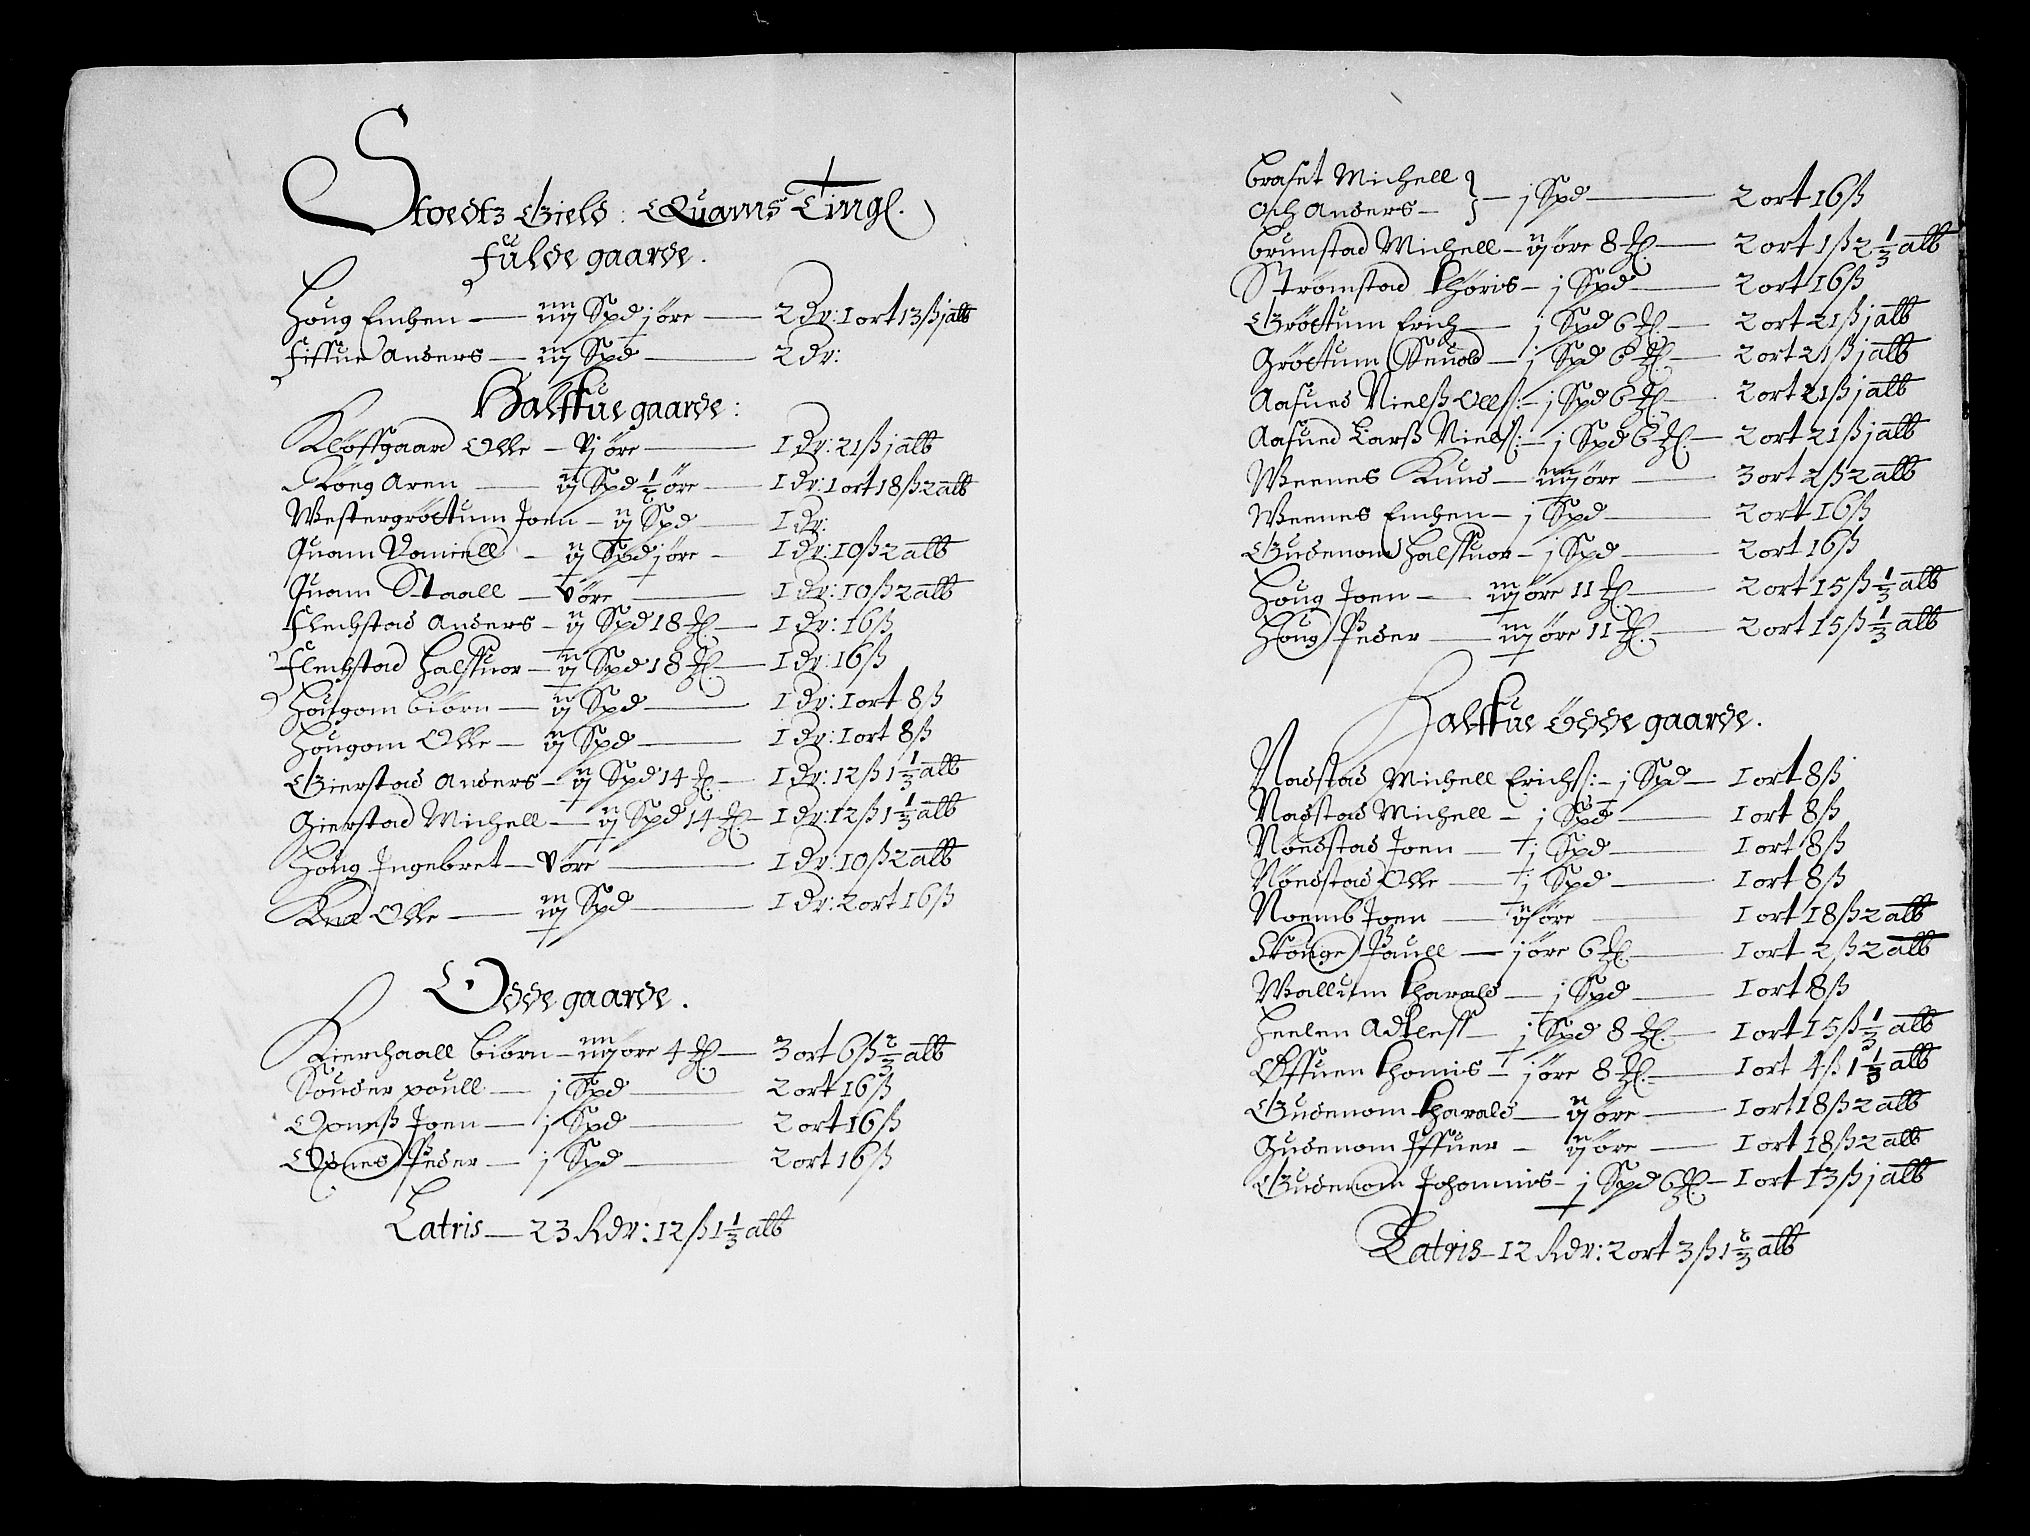 Stoedtz Gield: Quams Tingl.
Fulde gaarde.
Houg Emben — iiij Spd j öre — 2 dr: 1 ort 13 ß j alb
Fiffue Anders — iij Spd — 2 dr:
Halffue gaarde:
Klöffgaard Olle — vj öre — 1 dr: 21 ß j alb
Röeg Aren — ij Spd ½ öre — 1 dr: 1 ort 18 ß 2 alb
Westergröttum Joen — ij Spd — 1 dr:
Quam Daniell — ij Spd j öre — 1 dr: 10 ß 2 alb
Quam Staall — v öre — 1 dr: 10 ß 2 alb
Flechstad Anders — ij Spd 18 ℳ. — 1 dr: 16 ß
Flechstad Halffuor — ij Spd 18 ℳ. — 1 dr: 16 ß
Hougom biörn — ij Spd — 1 dr: 1 ort 8 ß
Hougom Olle — ij Spd — 1 dr: 1 ort 8 ß
Gierstad Anders — ij Spd 14 ℳ. — 1 dr: 12 ß 1 1/3 alb
Gierstad Michell — ij Spd 14 ℳ. — 1 dr: 12 ß 1 1/3 alb
Houg Ingebret — v öre — 1 dr: 10 ß 2 alb
Kne Olle — iij Spd — 1 dr: 2 ort 16 ß
Ödde gaarde.
Kierchaall biörn — iiij öre 4 ℳ. — 3 ort 6 ß 2/3 alb
Sönder poull — j Spd — 2 ort 16 ß
Opneß Joen — j Spd — 2 ort 16 ß
Opnes Peder — j Spd — 2 ort 16 ß
Latris — 23 Rdr: 12 ß 1 1/3 alb
braset Michell }
och Anders — } — j Spd — 2 ort 16 ß
brunstad Michell — ij öre 8 ℳ. — 2 ort 1 ß 2 1/3 alb
Strömstad thöris — j Spd — 2 ort 16 ß
Gröttum Erich — j Spd 6 ℳ. — 2 ort 21 ß j alb
Gröttum Seuold — j Spd 6 ℳ. — 2 ort 21 ß j alb
Aasued Nielß Olls: — j Spd 6 ℳ. — 2 ort 21 ß j alb
Aasued Larß Niels: — j Spd 6 ℳ. — 2 ort 21 ß j alb
Weenes Knud — iiij öre — 3 ort 2 ß 2 alb
Weenes Emben — j Spd — 2 ort 16 ß
Gudenom Halffuor — j Spd — 2 ort 16 ß
Houg Joen — iij öre 11 ℳ. — 2 ort 15 ß 1/3 alb
Houg Peder — iij öre 11 ℳ. — 2 ort 15 ß 1/3 alb
Halffue Ödde gaarde.
Nadstad Michell Erichs: — j Spd — 1 ort 8 ß
Nadstad Michell — j Spd — 1 ort 8 ß
Nöedstad Joen — j Spd — 1 ort 8 ß
Nöedstad Olle — j Spd — 1 ort 8 ß
Noemb Joen — ij öre — 1 ort 18 ß 2 alb
Skouge Pauell — j öre 6 ℳ. — 1 ort 2 ß 2 alb
Wallum tharald — j Spd — 1 ort 8 ß
Heelen Adtleff — j Spd 8 ℳ. — 1 ort 15 ß 1/3 alb
Öffuen thomis — j öre 8 ℳ. — 1 ort 4 ß 1 1/3 alb
Gudenom tharald — ij öre — 1 ort 18 ß 2 alb
Gudenom Iffuer — ij öre — 1 ort 18 ß 2 alb
Gudenom Johannis — j Spd 6 ℳ. — 1 ort 13 ß j alb
Latris — 12 Rdr: 2 ort 3 ß 1 2/3 alb